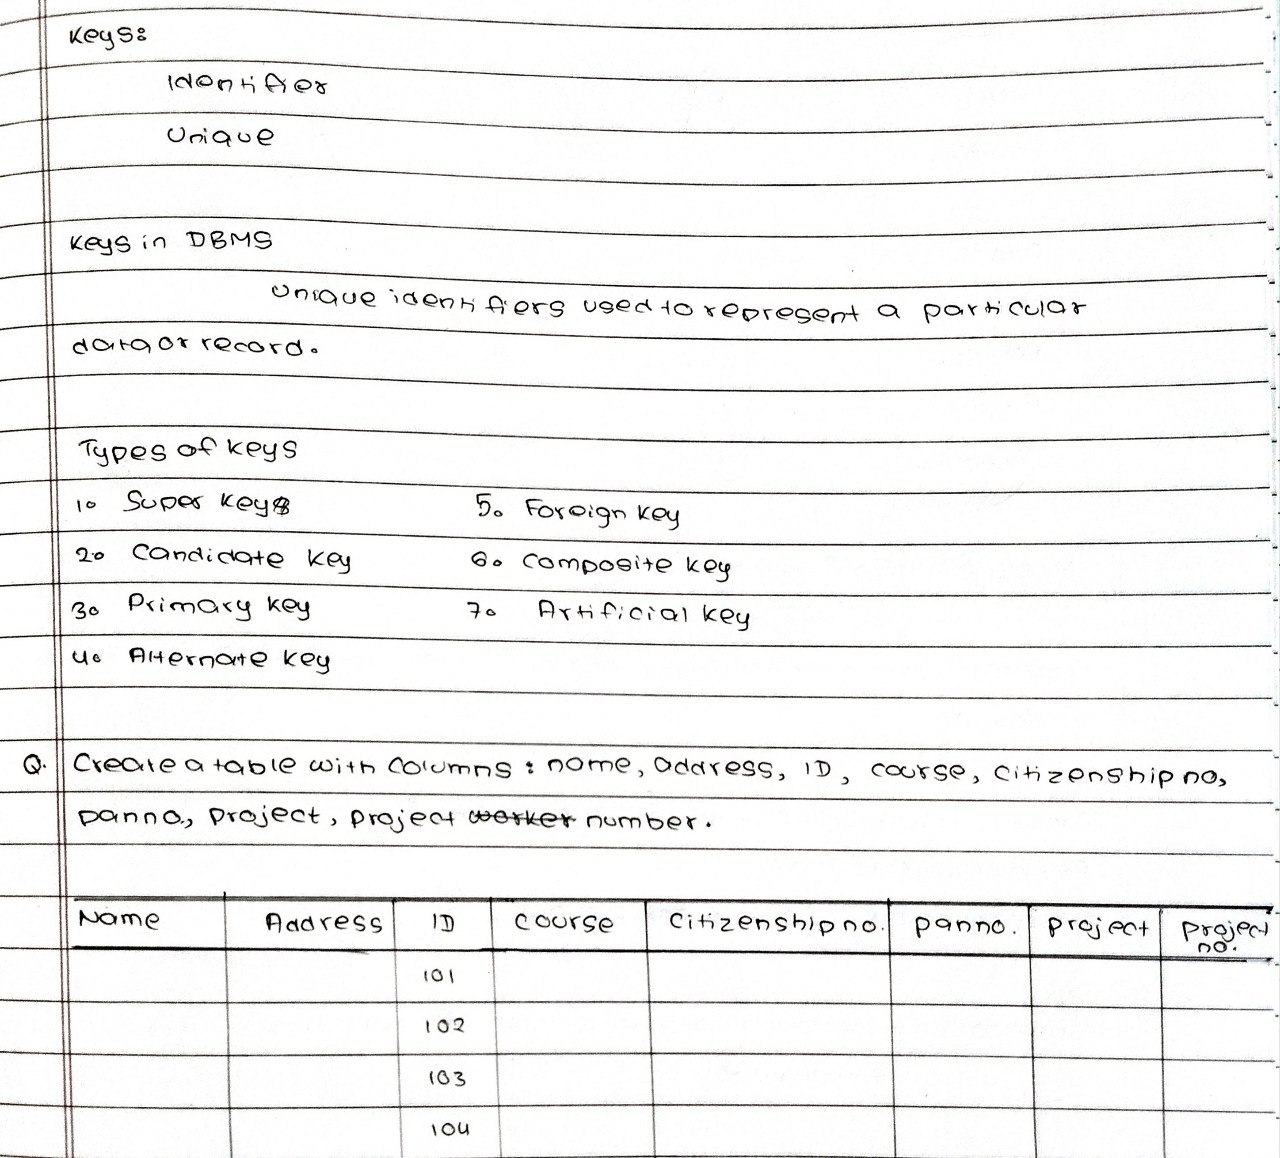 Keys:
Identifier
Unique
Keys in DBMS
Unique identifiers used to represent a particular
data or record.
Types of keys
1. Super key
5. Foreign key
2. Candidate key
6. Composite key
3. Primary key
7. Artificial key
4. Alternate key
Q. Create a table with columns : name, address, ID, course, citizenship no,
panno, project, project worker number.
Name Address ID course citizenship no. panno. project project no.
101
102
103
104